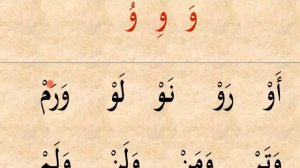 وَ وِ وُ
أَوْ رَوْ نَوْ لَوْ وَرَمْ
وَتَرْ وَمَنْ وَلَنْ وَلَمْ